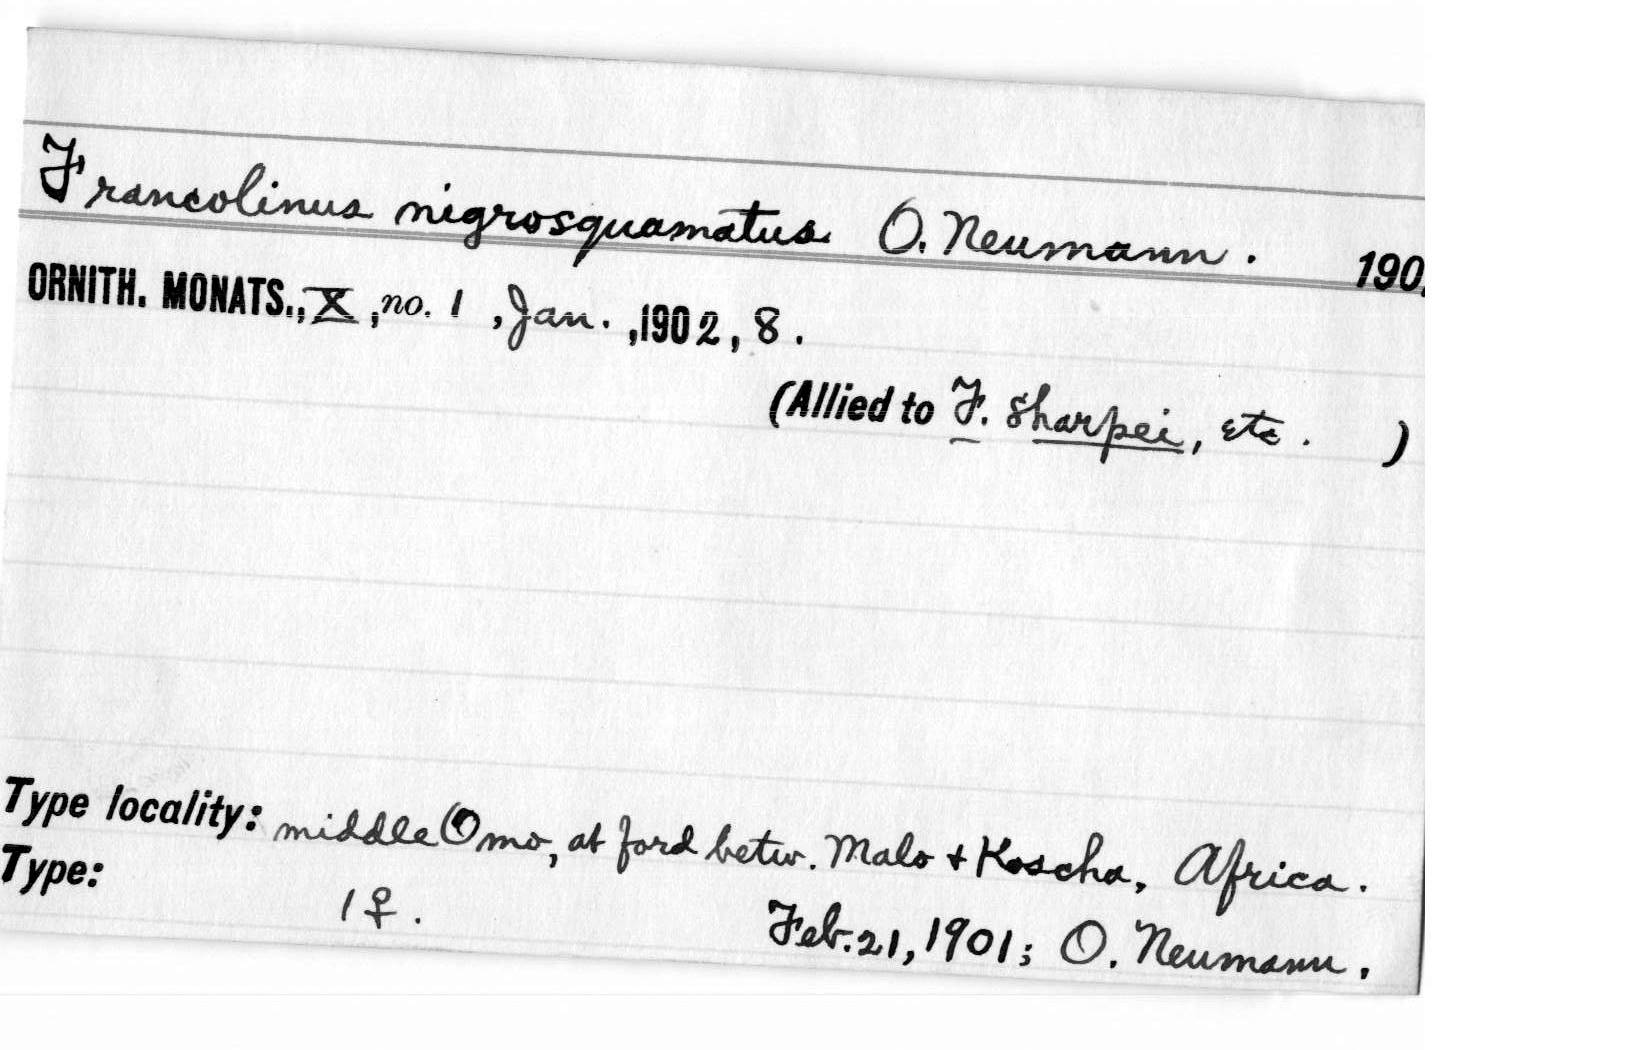 Francolinus nigrosquamatus O. Neumann. 190
ORNITH. MONATS., X, no. 1, Jan., 1902, 8.
(Allied to F. sharpei, etc. )
Type locality: middle Omo, at ford betw. Malo + Koscha, Africa.
Type: 1 ♀. Feb. 21, 1901; O. Neumann.